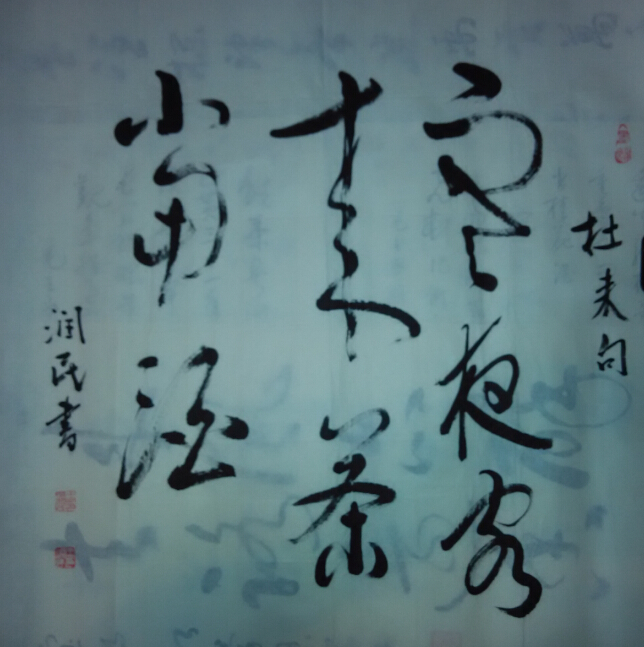 杜耒句
寒夜客
来茶
當酒
润民书